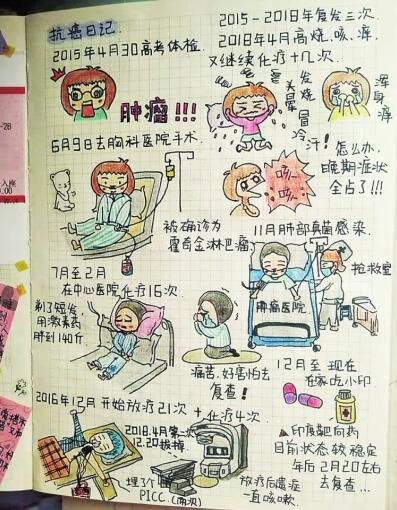 抗癌日记
2015年4月30高考体检.
肿瘤!!!
6月9日去胸科医院手术.
被确诊为
霍奇金淋巴瘤
7月至2月
在中心医院化疗16次.
剃了短发,
用激素药
胖到140斤
痛苦.好害怕去
复查!
2016年12月开始放疗21次 + 化疗4次.
2018.4月第二次
12.20拔掉
埋了3个
PICC.(两次)
放疗后遗症
一直咳嗽.
2015-2018年复发三次.
2018年4月高烧、咳、痒,
又继续化疗十几次.
发烧
冒冷汗!
浑身痒
咳-
咳-
怎么办,
晚期症状
全占了!!!
11月肺部真菌感染.
抢救室
肿瘤医院
12月至现在
在家吃小印
印度靶向药
目前状态较稳定
年后2月20左右
去复查...